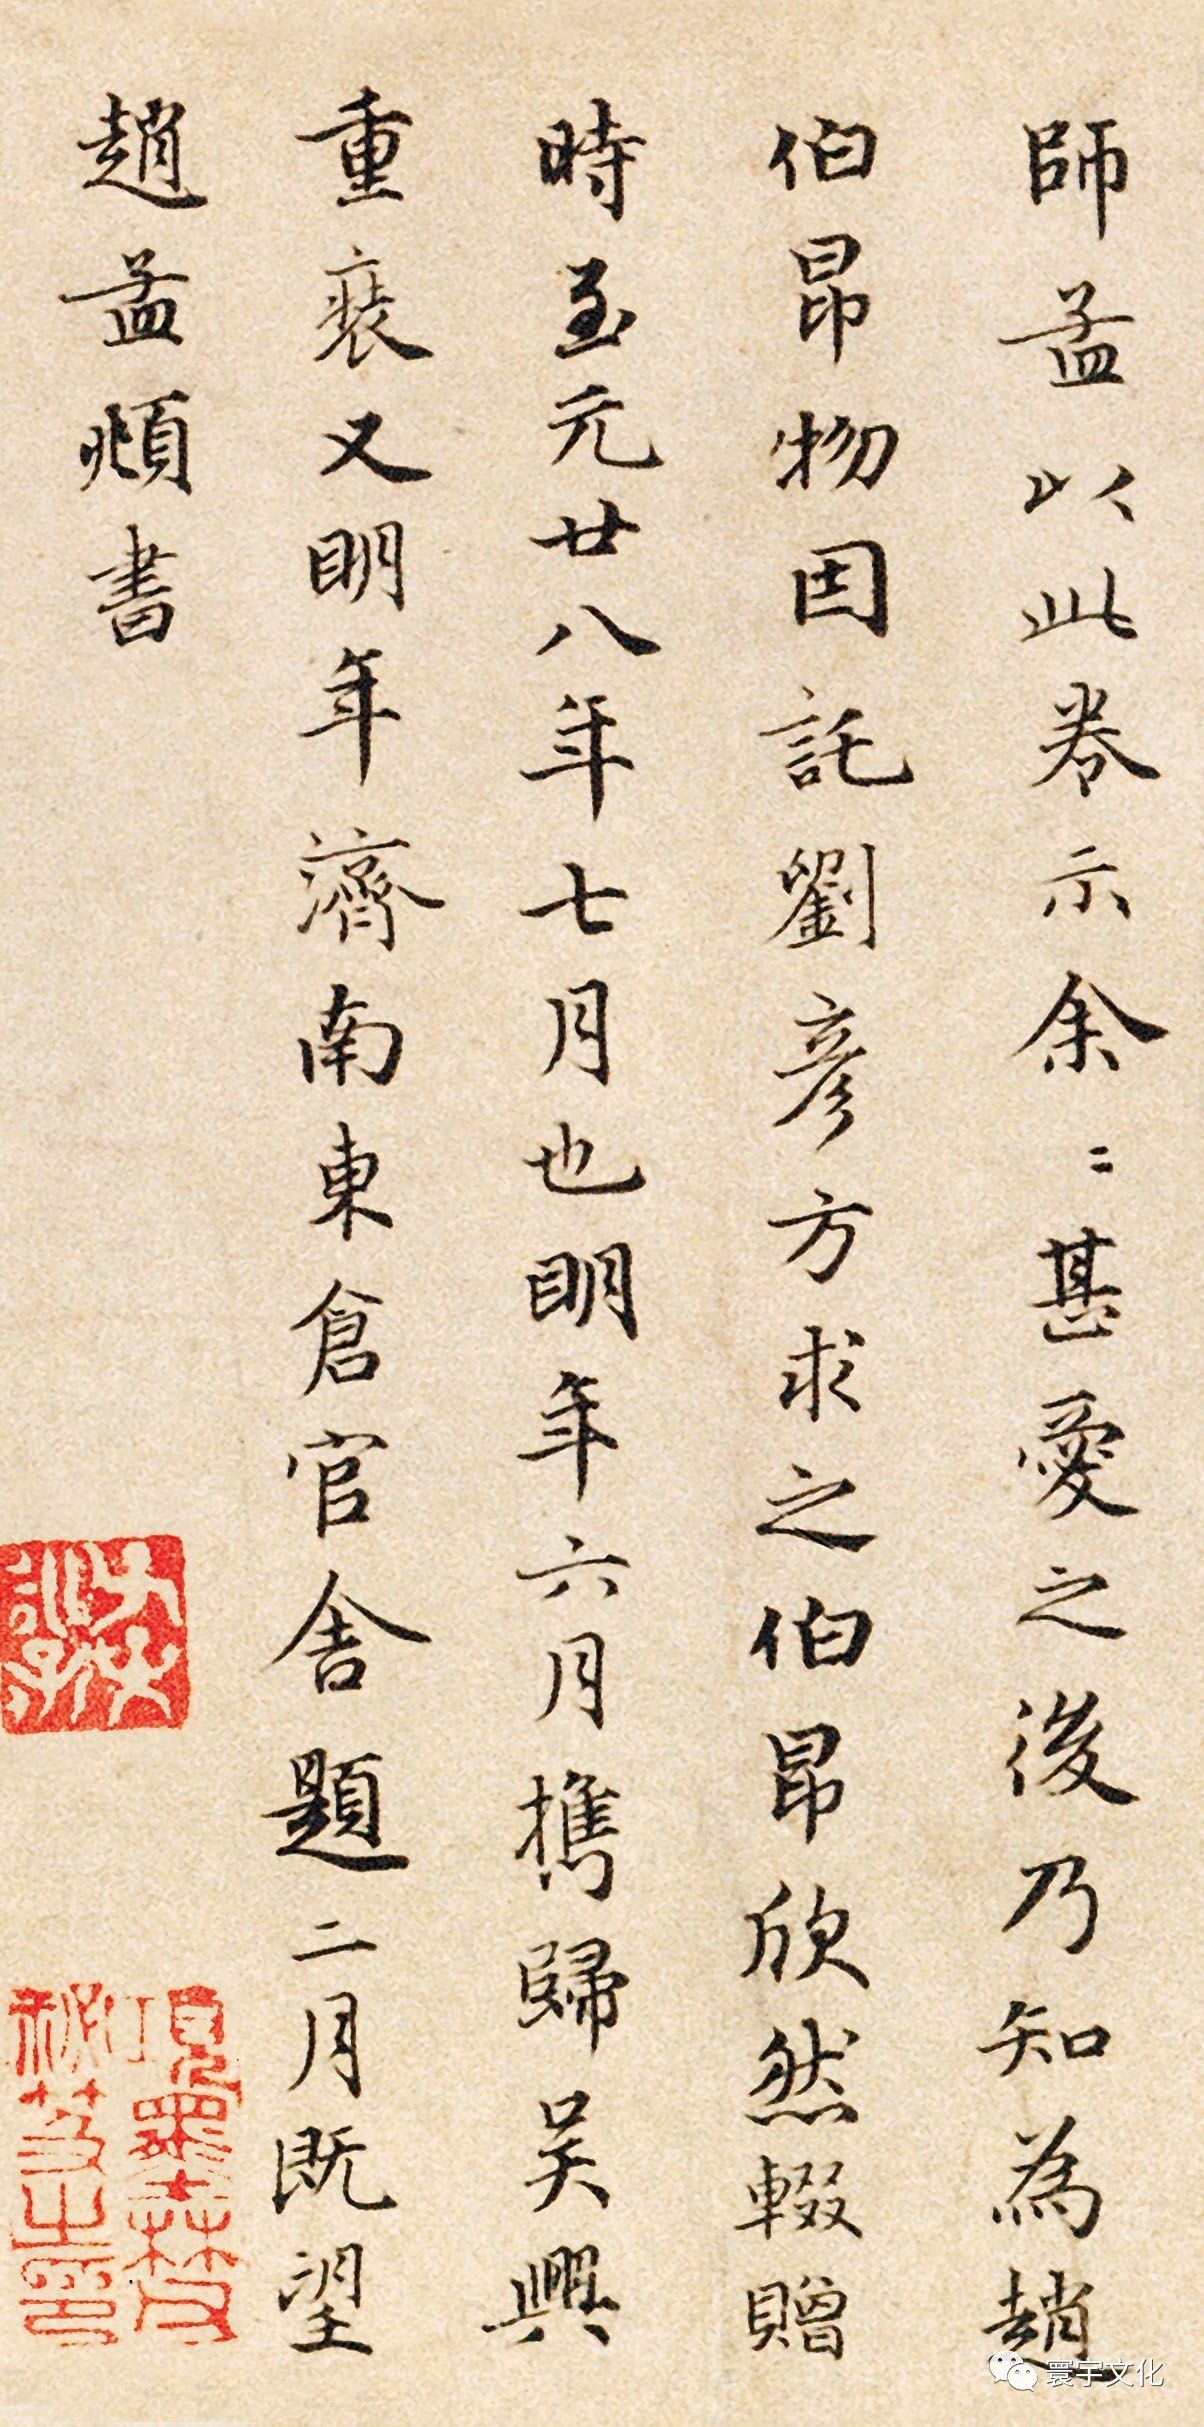 師孟以此卷示余〻甚愛之後乃知為趙
伯昂物因託劉彥方求之伯昂欣然輟贈
時至元廿八年七月也明年六月攜歸吴興
重裝又明年濟南東倉官舍題二月既望
趙孟頫書
項墨林
秘笈之印
寰宇文化